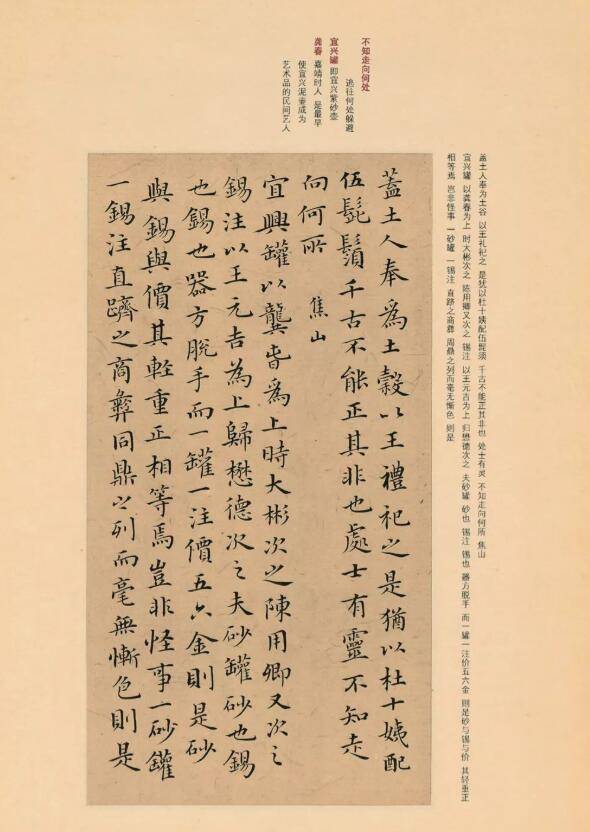 不知走向何处
逃往何处躲避
宜兴罐 即宜兴紫砂壶
龚春 嘉靖时人 是最早
使宜兴泥壶成为
艺术品的民间艺人
盖土人奉为土谷 以王礼祀之 是犹以杜十姨配伍髭须 千古不能正其非也 处士有灵 不知走向何所 焦山
宜兴罐 以龚春为上 时大彬次之 陈用卿又次之 锡注 以王元吉为上 归懋德次之 夫砂罐 砂也 锡注 锡也 器方脱手 而一罐一注价五六金 则是砂与锡与价 其轻重正
相等焉 岂非怪事 一砂罐 一锡注 直跻之商彝 周鼎之列而毫无惭色 则是
蓋土人奉為土穀以王禮祀之是猶以杜十姨配
伍髭鬚千古不能正其非也處士有靈不知走
向何所 焦山
宜興罐以龔春為上時大彬次之陳用卿又次之
錫注以王元吉為上歸懋德次之夫砂罐砂也錫
也錫也器方脫手而一罐一注價五六金則是砂
與錫與價其輕重正相等焉豈非怪事一砂罐
一錫注直躋之商彝周鼎之列而毫無慚色則是